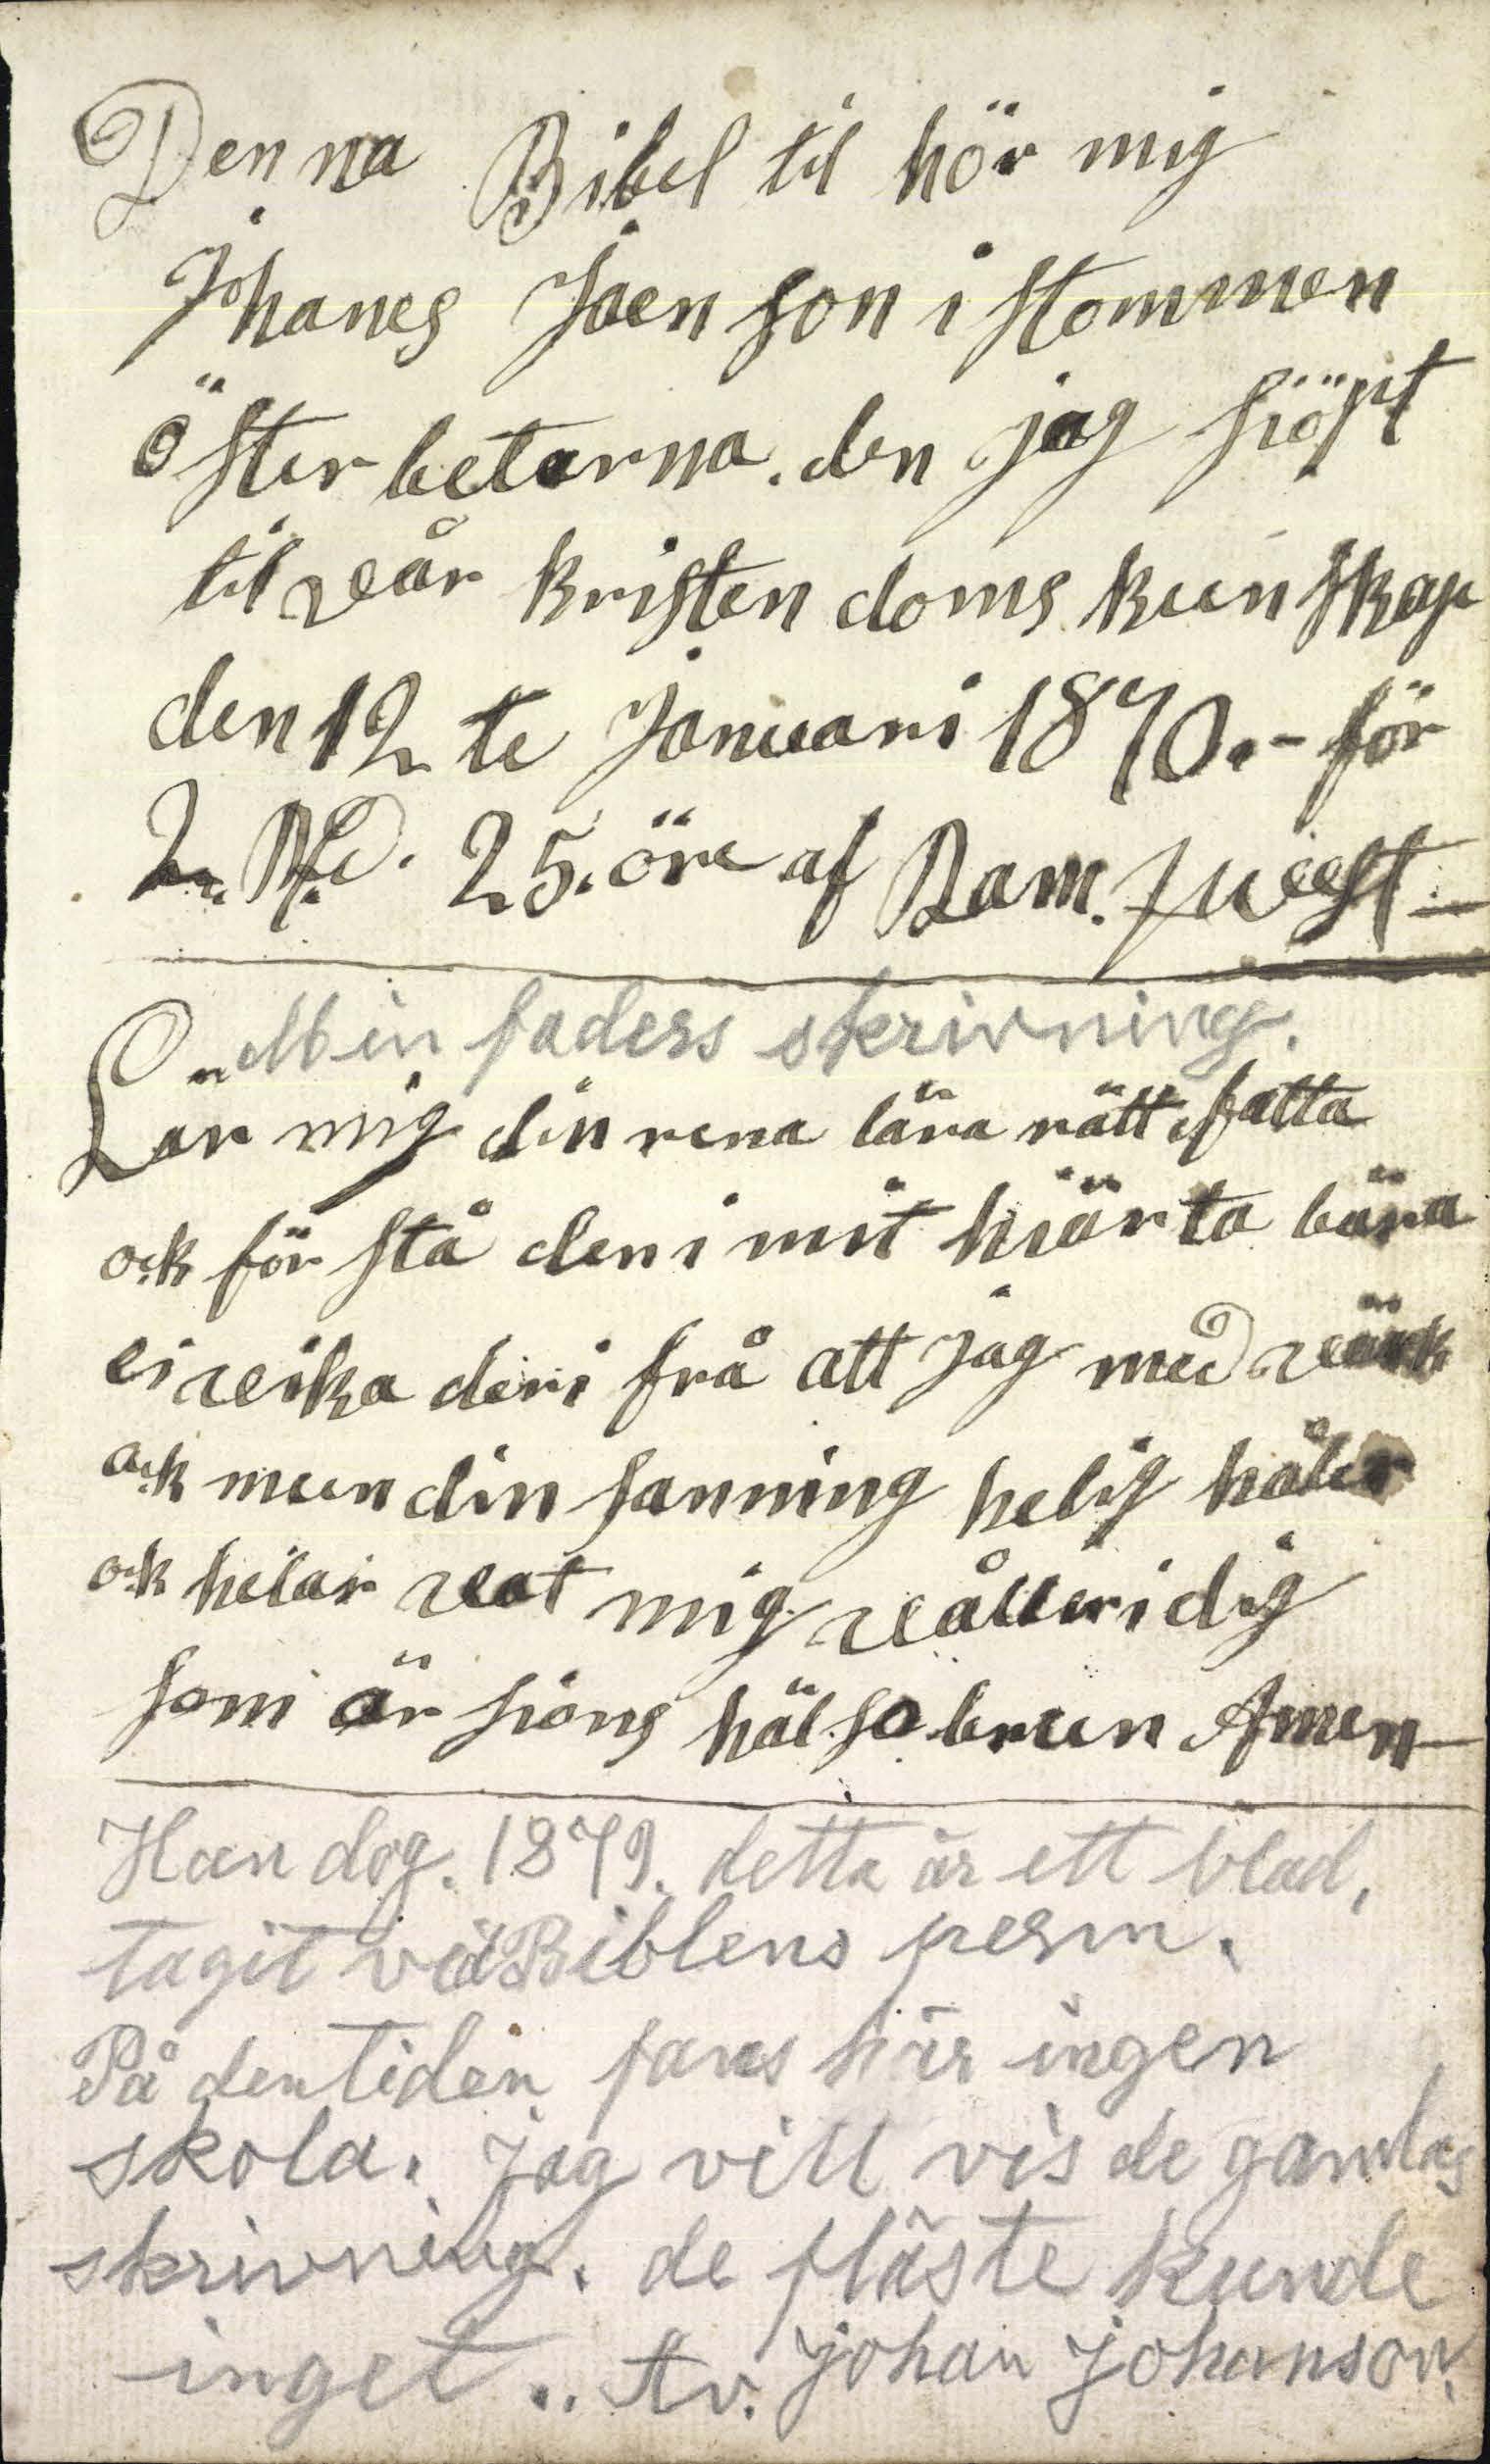 Denna Bibel til hör mig
Johanes Svenson i Stommen
öster betarna. den jag kiöpt
til vår kristen doms kunskap
den 12 te Januari 1870.- för
2. Rd. 25. öre af Dam.
Min faders skrivning.
Lär mig din rena lära rätt fatta
ock för stå den i mit hiärta bära
ei vika deri frå att jag med värk
ock mun din sanning helig håler
ock helar vat mig våller i dig
som är sions hälso brun Amen
Han dog. 1879. detta är ett blad,
tagit vid Biblens perm.
På den tiden fans här ingen
skola. Jag vill vis de gamlas
skrivning. de fläste kunde
inget .. Av. Johan Johanson.